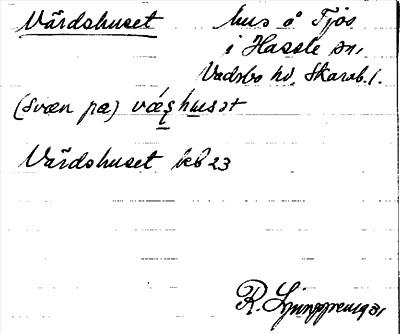 Värdshuset hus å Fjös
i Hassle sn,
Vadsbo hd, Skarab. l.
(svæn pa) væʂhusət
Värdshuset kb 23
R. Ljunggren 1931